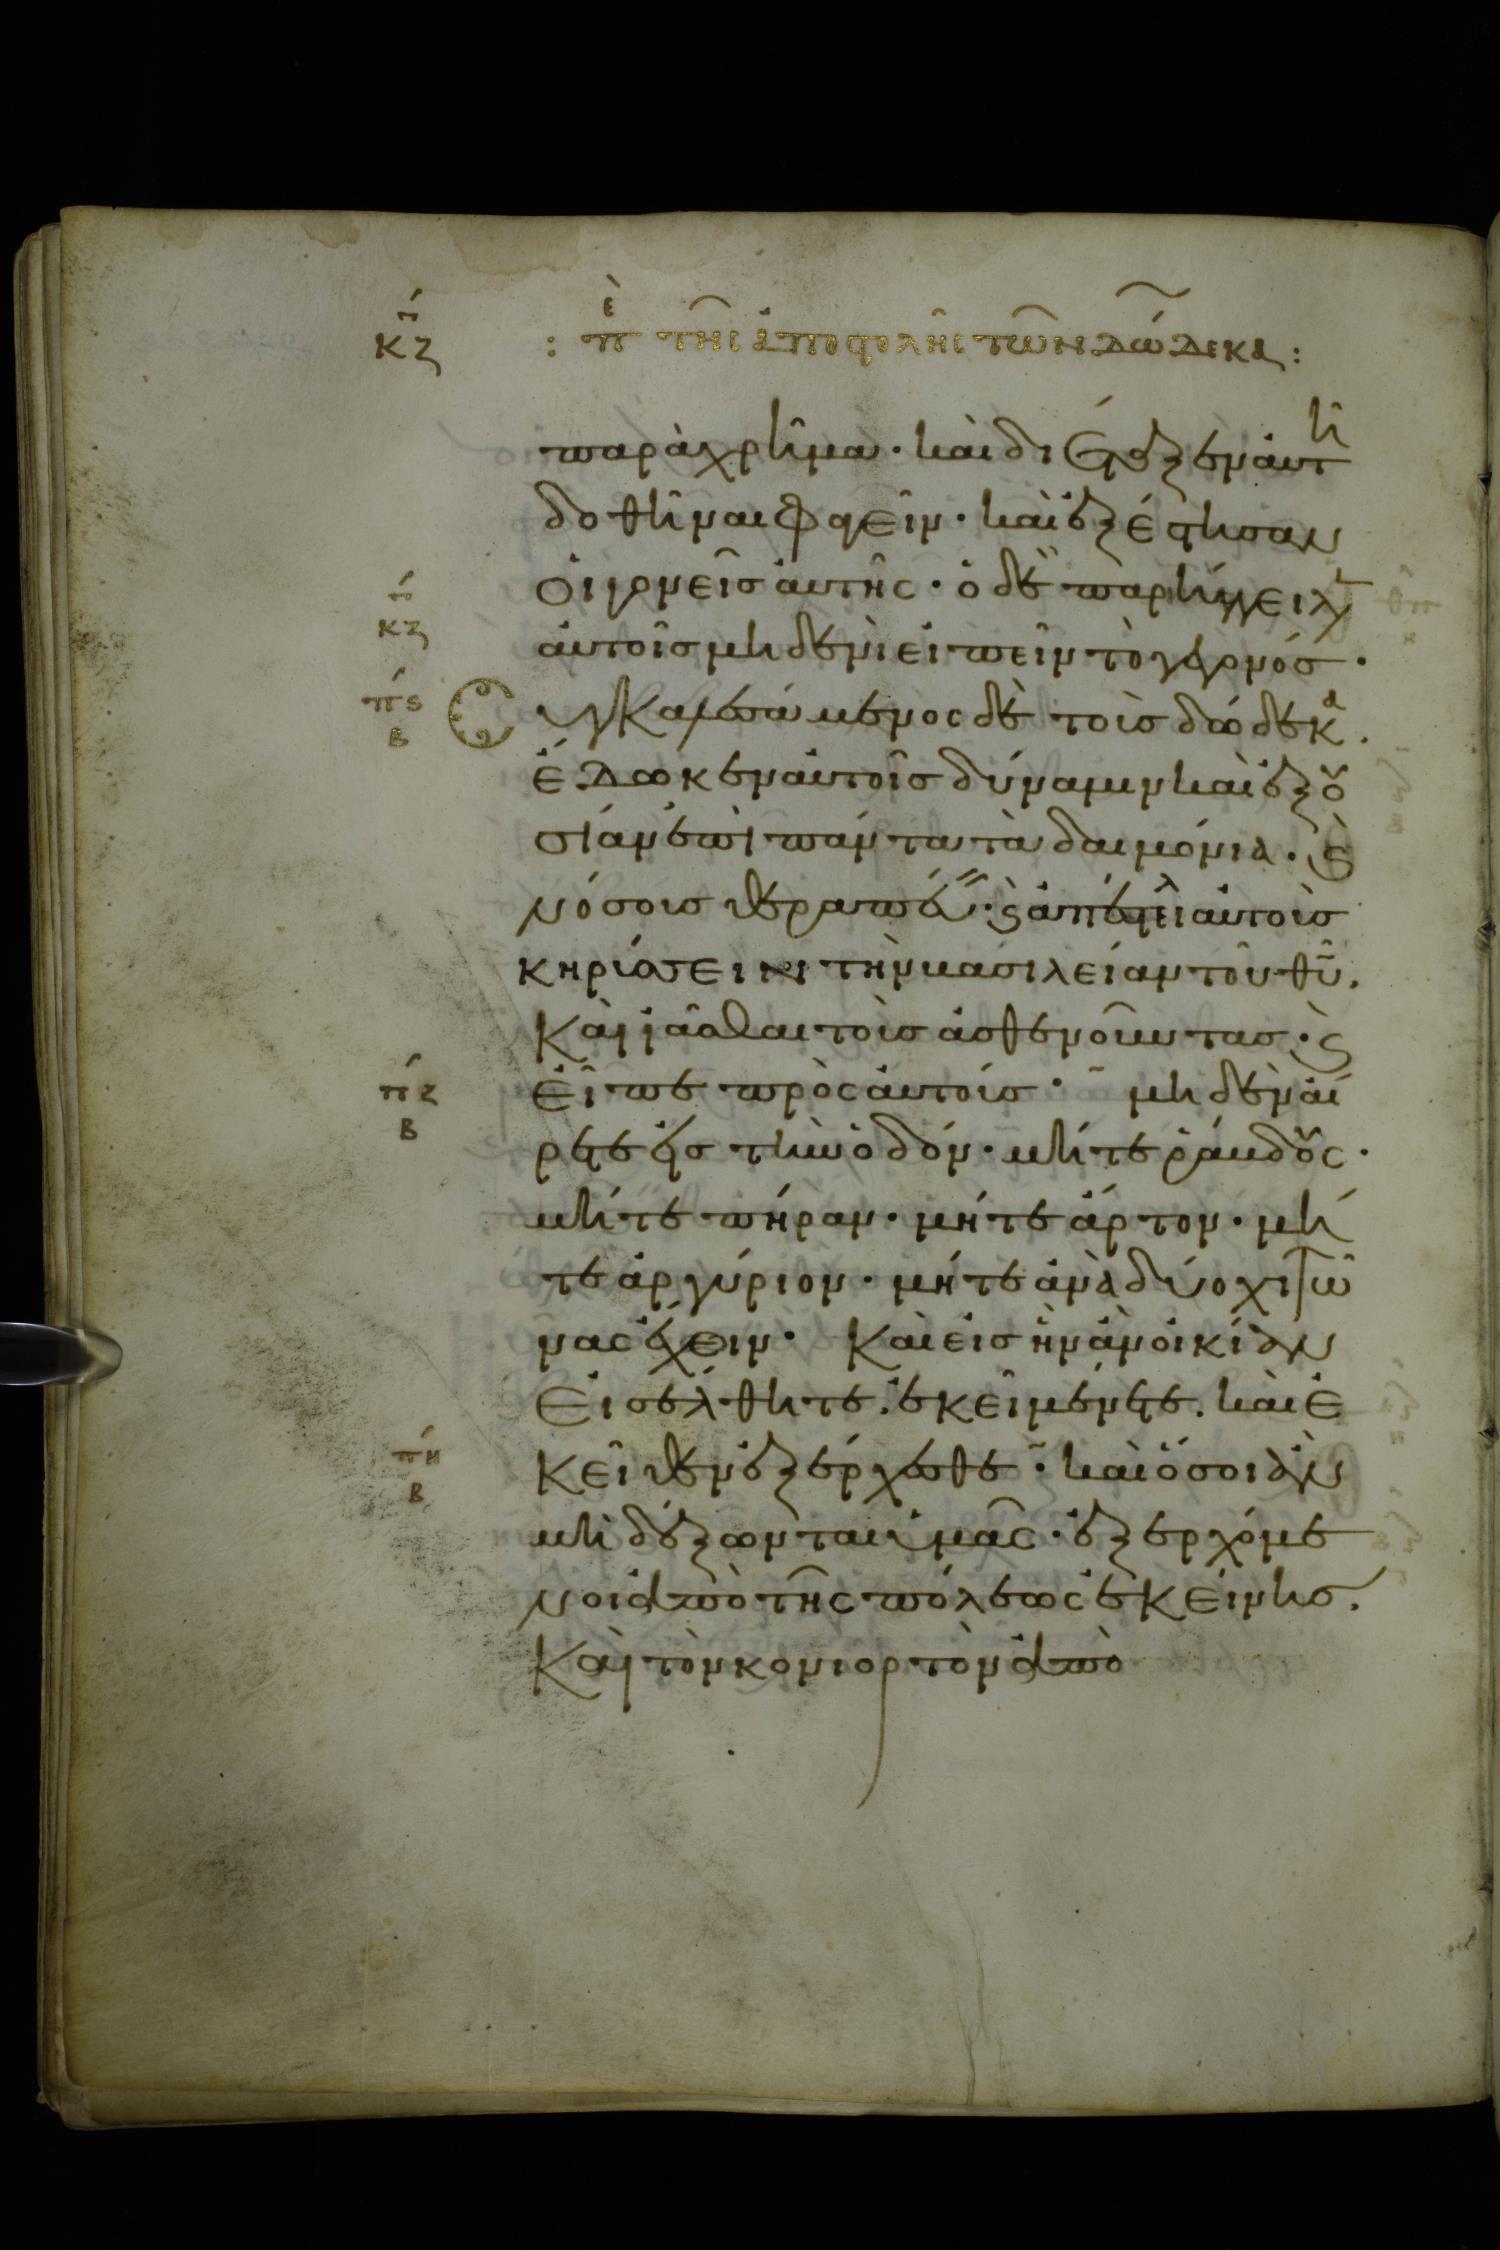 κζ : πε της αποστολης των δωδεκα :
παραχρῆμα · καὶ διέταξεν αὐτῆ
δοθῆναι φαγεῖν · καὶ ἐξέστησαν
οἱ γονεῖσ αὐτῆς · ὁ δὲ παρήγγειλ
κζ αὐτοῖσ μηδενὶ εἰπεῖν τὸ γεγονόσ ·
πς β Συγκαλεσάμενος δὲ τοὶσ δώδεκα .
ἔδωκεν αὐτοῖσ δύναμιν καὶ ἐξου
σίαν ἐπὶ πάντα τὰ δαιμόνια . ϗ
νόσοισ θεραπεύ · ϗ ἀπέστειλ αὐτοὶσ
κηρίσσειν τὴν βασιλείαν τοῦ θῦ .
Καὶ ἰᾶσθαι τοὶσ ἀσθενοῦντασ · ϗ
πζ β εἶπε πρὸς αὐτοίσ · μηδὲν αἴ
ρετε εἰσ τὴν ὁδόν · μήτε ῥάβδους ·
μήτε πήραν · μήτε ἄρτον · μή
τε ἀργύριον · μήτε ἀνὰ δύο χιτῶ
νας ἔχειν · Καὶ εἰσ ἣν ἂν οἰκίαν
εἰσέλθητε . ἐκεῖ μένετε . καὶ ἐ
πη β κεῖθεν ἐξέρχεσθε · καὶ ὅσοι ἂν
μὴ δέξωνται ὑμᾶς · ἐξερχόμε
νοι ἀπὸ τῆς πόλεως ἐκείνησ .
Καὶ τὸν κονιορτὸν ἀπὸ